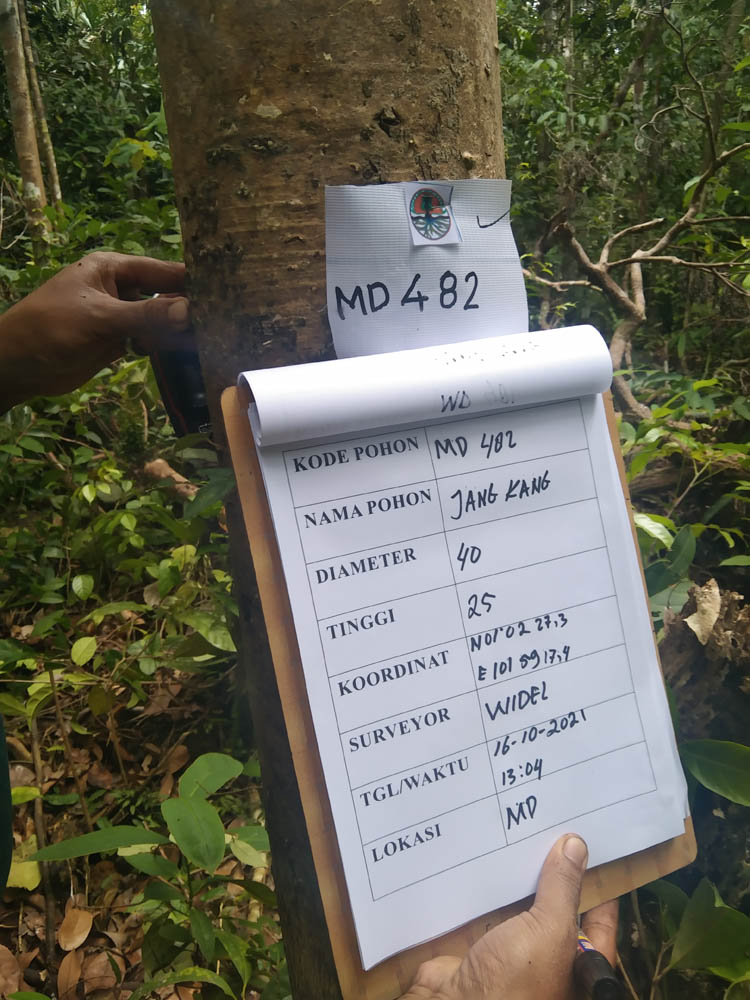 MD 482
WD
KODE POHON MD 482
NAMA POHON JANG KANG
DIAMETER 40
TINGGI 25
KOORDINAT N01°02 27,3
E 101 59 17,4
SURVEYOR WIDEL
TGL/WAKTU 16-10-2021
13:04
LOKASI MD